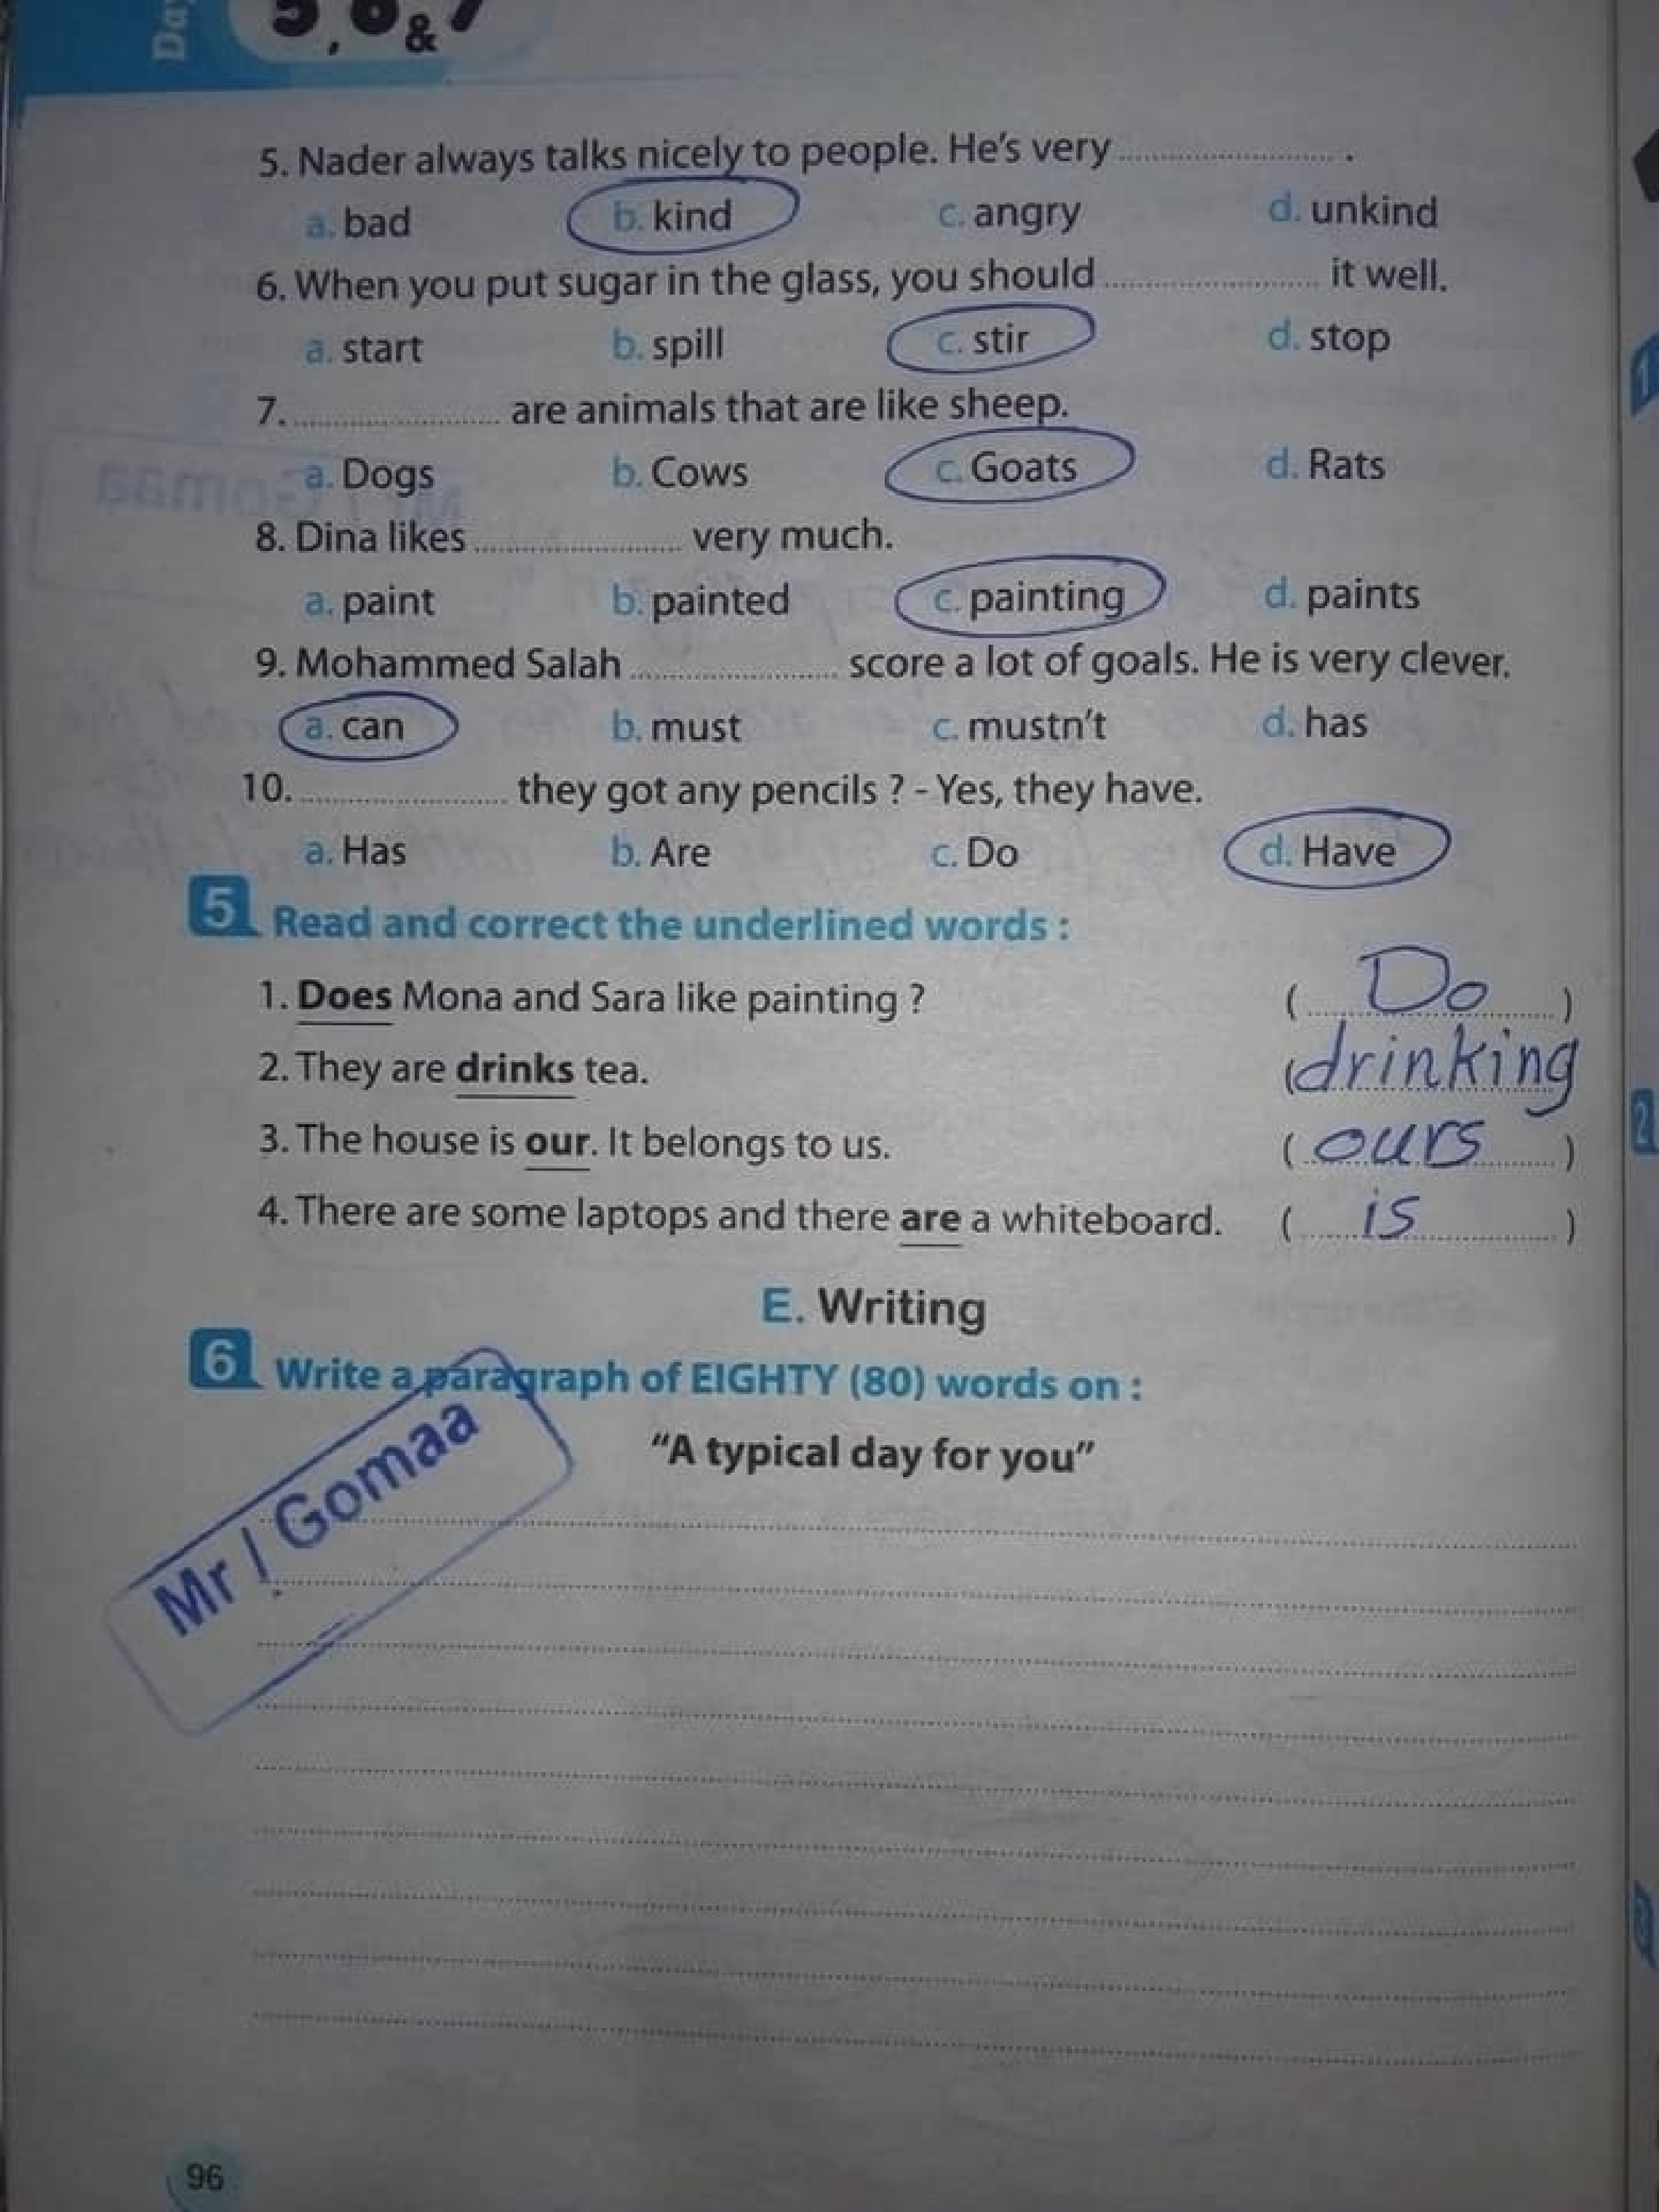 Day
5, 6 & 7
5. Nader always talks nicely to people. He's very ........................ .
a. bad b. kind c. angry d. unkind
6. When you put sugar in the glass, you should ........................ it well.
a. start b. spill c. stir d. stop
7. ........................ are animals that are like sheep.
a. Dogs b. Cows c. Goats d. Rats
8. Dina likes ........................ very much.
a. paint b. painted c. painting d. paints
9. Mohammed Salah ........................ score a lot of goals. He is very clever.
a. can b. must c. mustn't d. has
10. ........................ they got any pencils ? - Yes, they have.
a. Has b. Are c. Do d. Have
5 Read and correct the underlined words :
1. Does Mona and Sara like painting ? (Do)
2. They are drinks tea. (drinking
3. The house is our. It belongs to us. (ours)
4. There are some laptops and there are a whiteboard. (is)
E. Writing
6 Write a paragraph of EIGHTY (80) words on :
"A typical day for you"
Mr / Gomaa
96
1
2
3